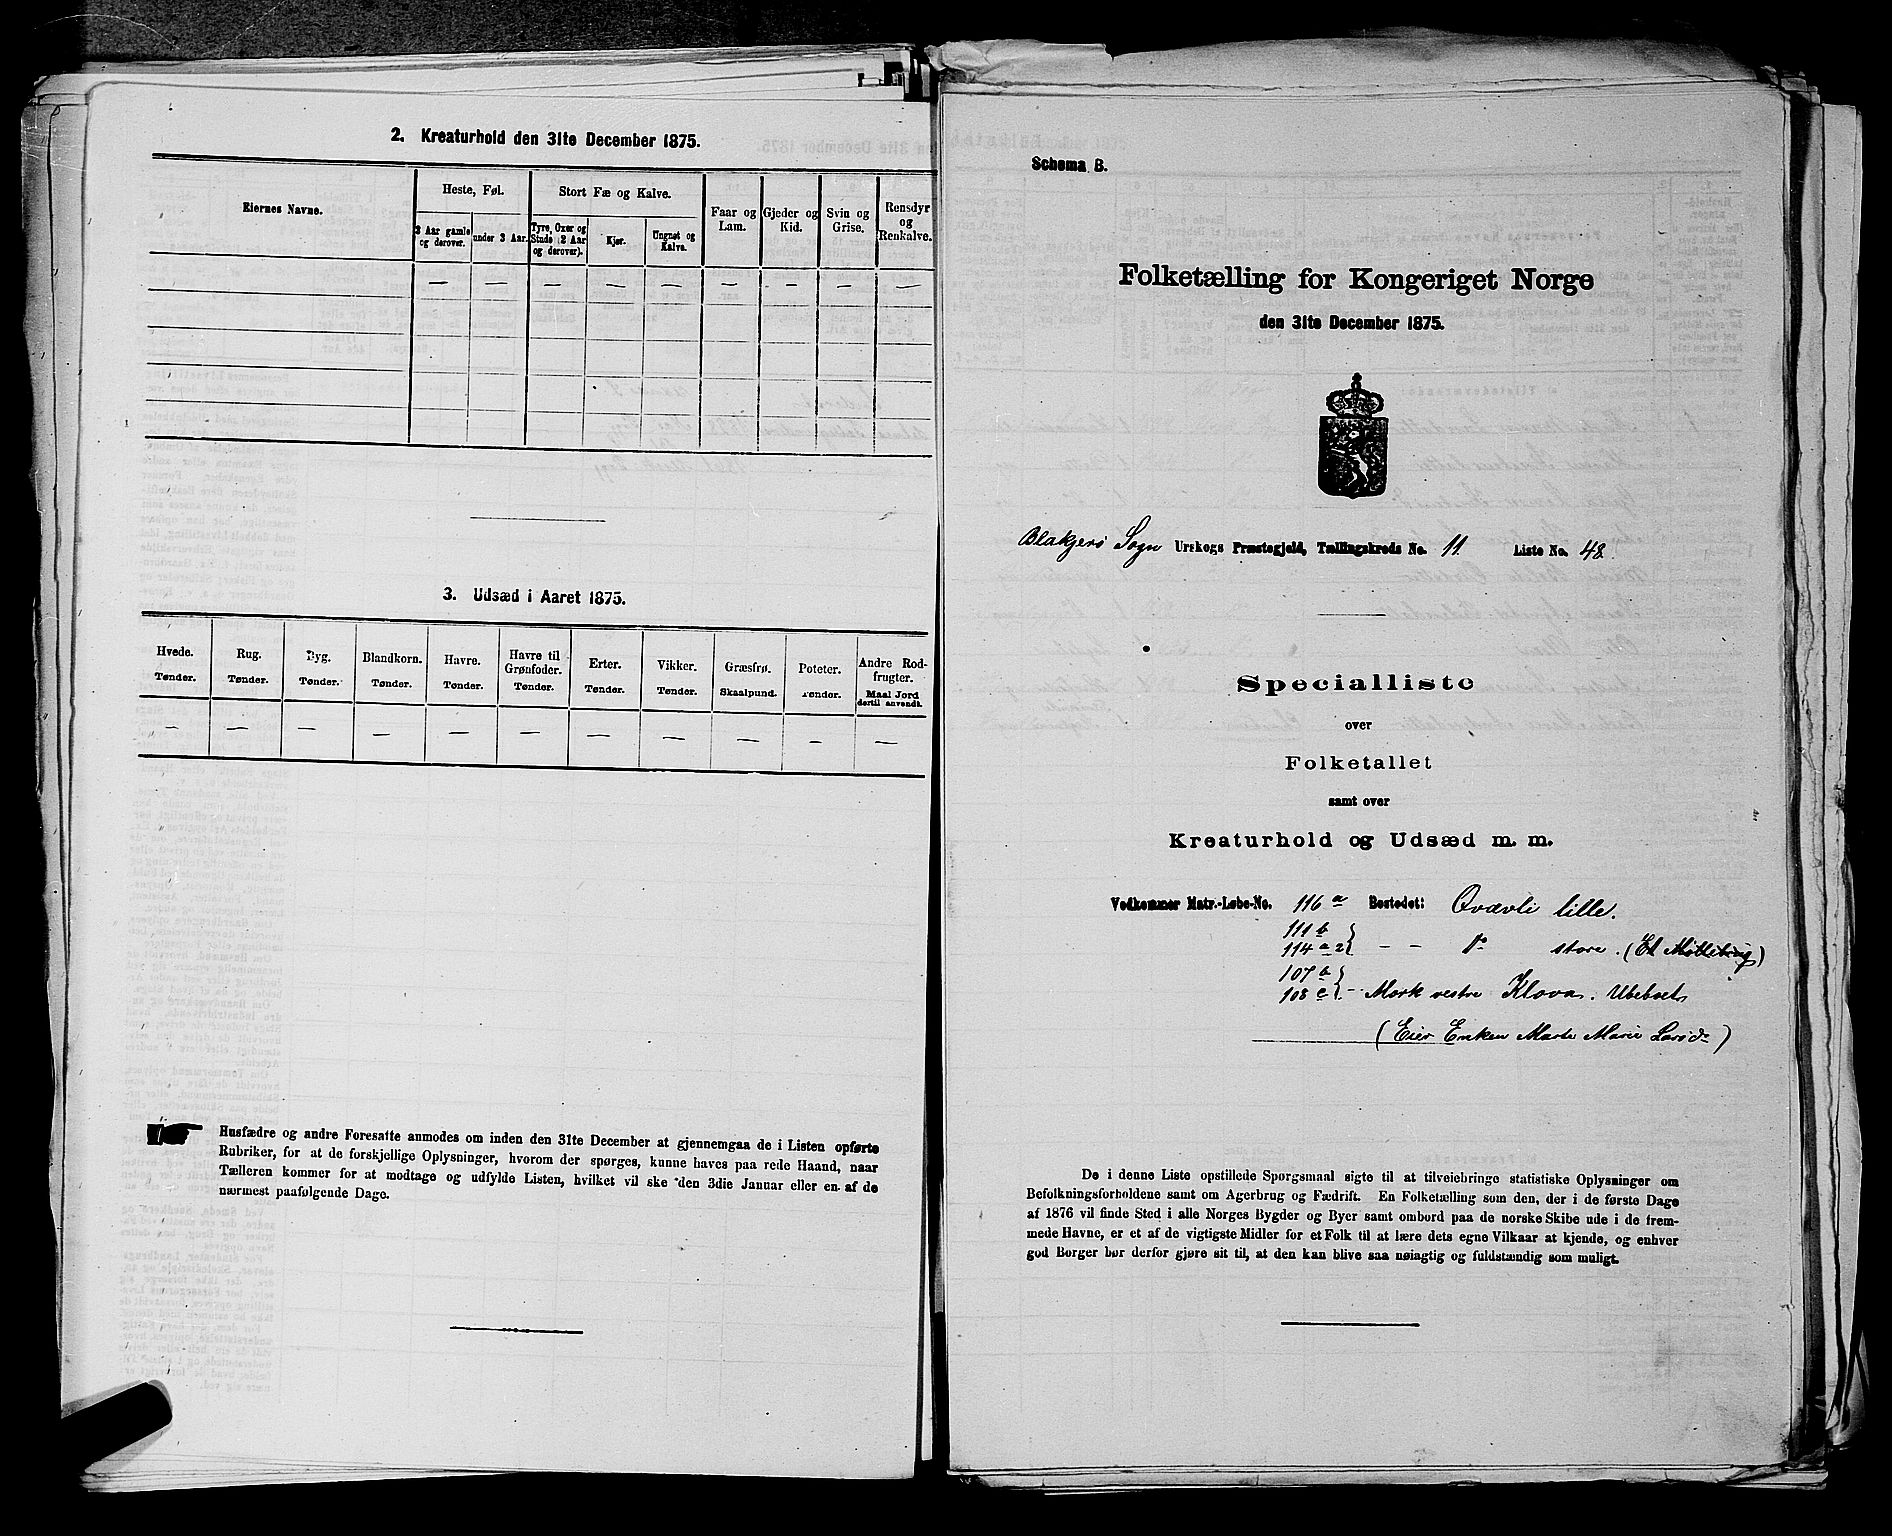 2. Kreaturhold den 31te December 1875.
Eiernes Navne.
Heste, Føl.
Stort Fæ og Kalve.
Faar og Lam.
Gjeder og Kid.
Svin og Grise.
Rensdyr og Renkalve.
3 Aar gamle og derover.
under 3 Aar.
Tyre, Oxer og Stude (2 Aar og derover).
Kjør.
Ungnøt og Kalve.
— — — — — — — — —
3. Udsæd i Aaret 1875.
Hvede. Tønder.
Rug. Tønder.
Byg. Tønder.
Blandkorn. Tønder.
Havre. Tønder.
Havre til Grønfoder. Tønder.
Erter. Tønder.
Vikker. Tønder.
Græsfrø. Skaalpund.
Poteter. Tønder.
Andre Rodfrugter. Maal Jord dertil anvendt.
— — — — — — — — — — —
Husfædre og andre Foresatte anmodes om inden den 31te December at gjennemgaa de i Listen opførte
Rubriker, for at de forskjellige Oplysninger, hvorom der spørges, kunne haves paa rede Haand, naar
Tælleren kommer for at modtage og udfylde Listen, hvilket vil ske den 3die Januar eller en af de
nærmest paafølgende Dage.
Schema B.
Folketælling for Kongeriget Norge
den 31te December 1875.
Blakjers Sogn Urskogs Præstegjeld, Tællingskreds No. 11 Liste No. 48
Specialliste
over
Folketallet
samt over
Kreaturhold og Udsæd m. m.
Vedkommer Matr.-Løbe-No. 116 a Bostedet: Qvævli lille.
111 b
114 a 2 — — do store. (Et Møllebrug)
107 b
108 c — Mork vestre Klova. Ubeboet
(Eier Enken Marte Marie Larsd)
De i denne Liste opstillede Spørgsmaal sigte til at tilveiebringe statistiske Oplysninger om
Befolkningsforholdene samt om Agerbrug og Fædrift. En Folketælling som den, der i de første Dage
af 1876 vil finde Sted i alle Norges Bygder og Byer samt ombord paa de norske Skibe ude i de frem-
mede Havne, er et af de vigtigste Midler for et Folk til at lære dets egne Vilkaar at kjende, og enhver
god Borger bør derfor gjøre sit til, at den kan blive saa nøiagtig og fuldstændig som muligt.